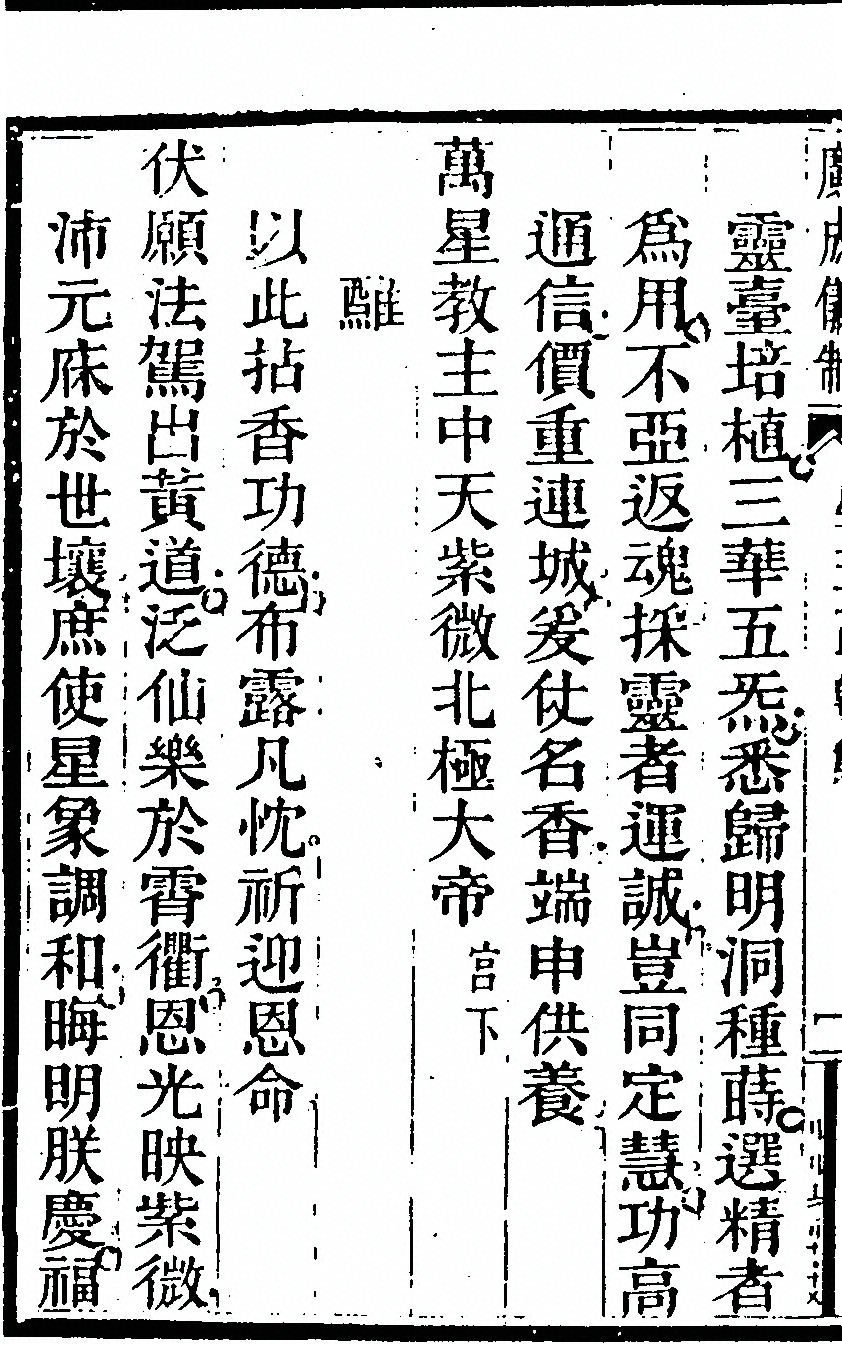 廣成儀制
靈臺培植三華五炁悉歸明洞種蒔選精者
爲用不亞返魂採靈者運誠豈同定慧功高
通信價重連城爰仗名香端申供養
萬星教主中天紫微北極大帝 宫下
以此拈香功德布露凡忱祈迎恩命
伏願法駕出黃道泛仙樂於霄衢恩光映紫微
沛元庥於世壤庶使星象調和晦明朕慶福